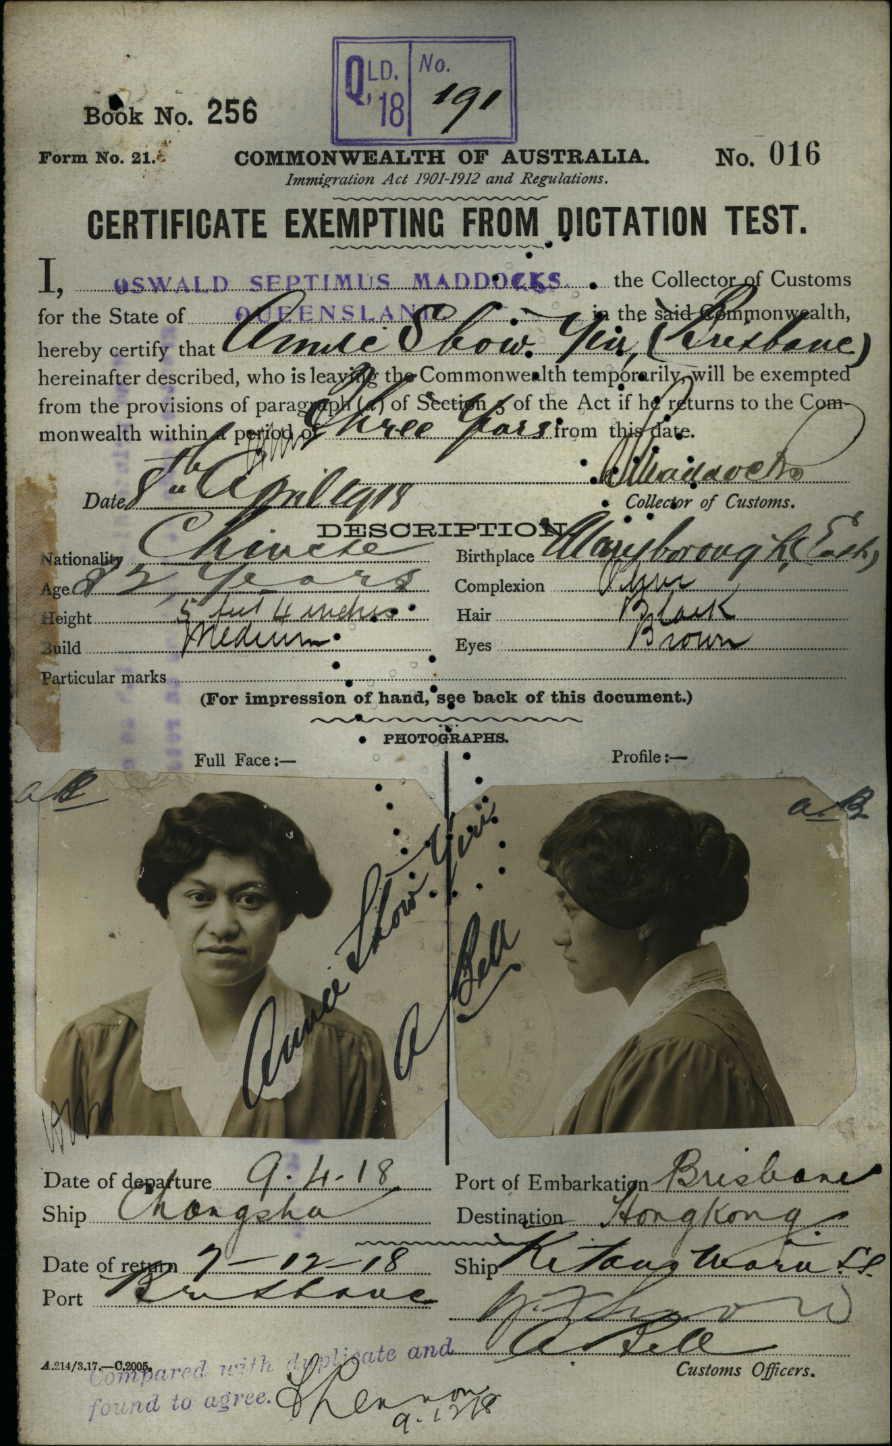 QLD. 18 No. 191
Book No. 256
Form No. 21. COMMONWEALTH OF AUSTRALIA. No. 016
Immigration Act 1901-1912 and Regulations.
CERTIFICATE EXEMPTING FROM DICTATION TEST.
I, OSWALD SEPTIMUS MADDOCKS. the Collector of Customs
for the State of QUEENSLAND in the said Commonwealth,
hereby certify that Annie Show Yin, (Brisbane)
hereinafter described, who is leaving the Commonwealth temporarily, will be exempted
from the provisions of paragraph (a) of Section 3 of the Act if he returns to the Com-
monwealth within a period of Three Years from this date.
O S Maddocks
Date 8th April 1918 Collector of Customs.
DESCRIPTION
Nationality Chinese Birthplace Maryborough (Qld)
Age 22 years Complexion
Height 5 feet 4 inches Hair Black
Build Medium Eyes Brown
Particular marks
(For impression of hand, see back of this document.)
PHOTOGRAPHS.
Full Face:— Profile:—
aB aB
Annie Show Yin
A Bell
Date of departure 9.4.18 Port of Embarkation Brisbane
Ship Changsha Destination Hongkong
Date of return 7-12-18 Ship Kitano Maru SS.
Port Brisbane
A Bell
A.214/3.17.—C.2005. Customs Officers.
Compared with duplicate and
found to agree.
9.12.18